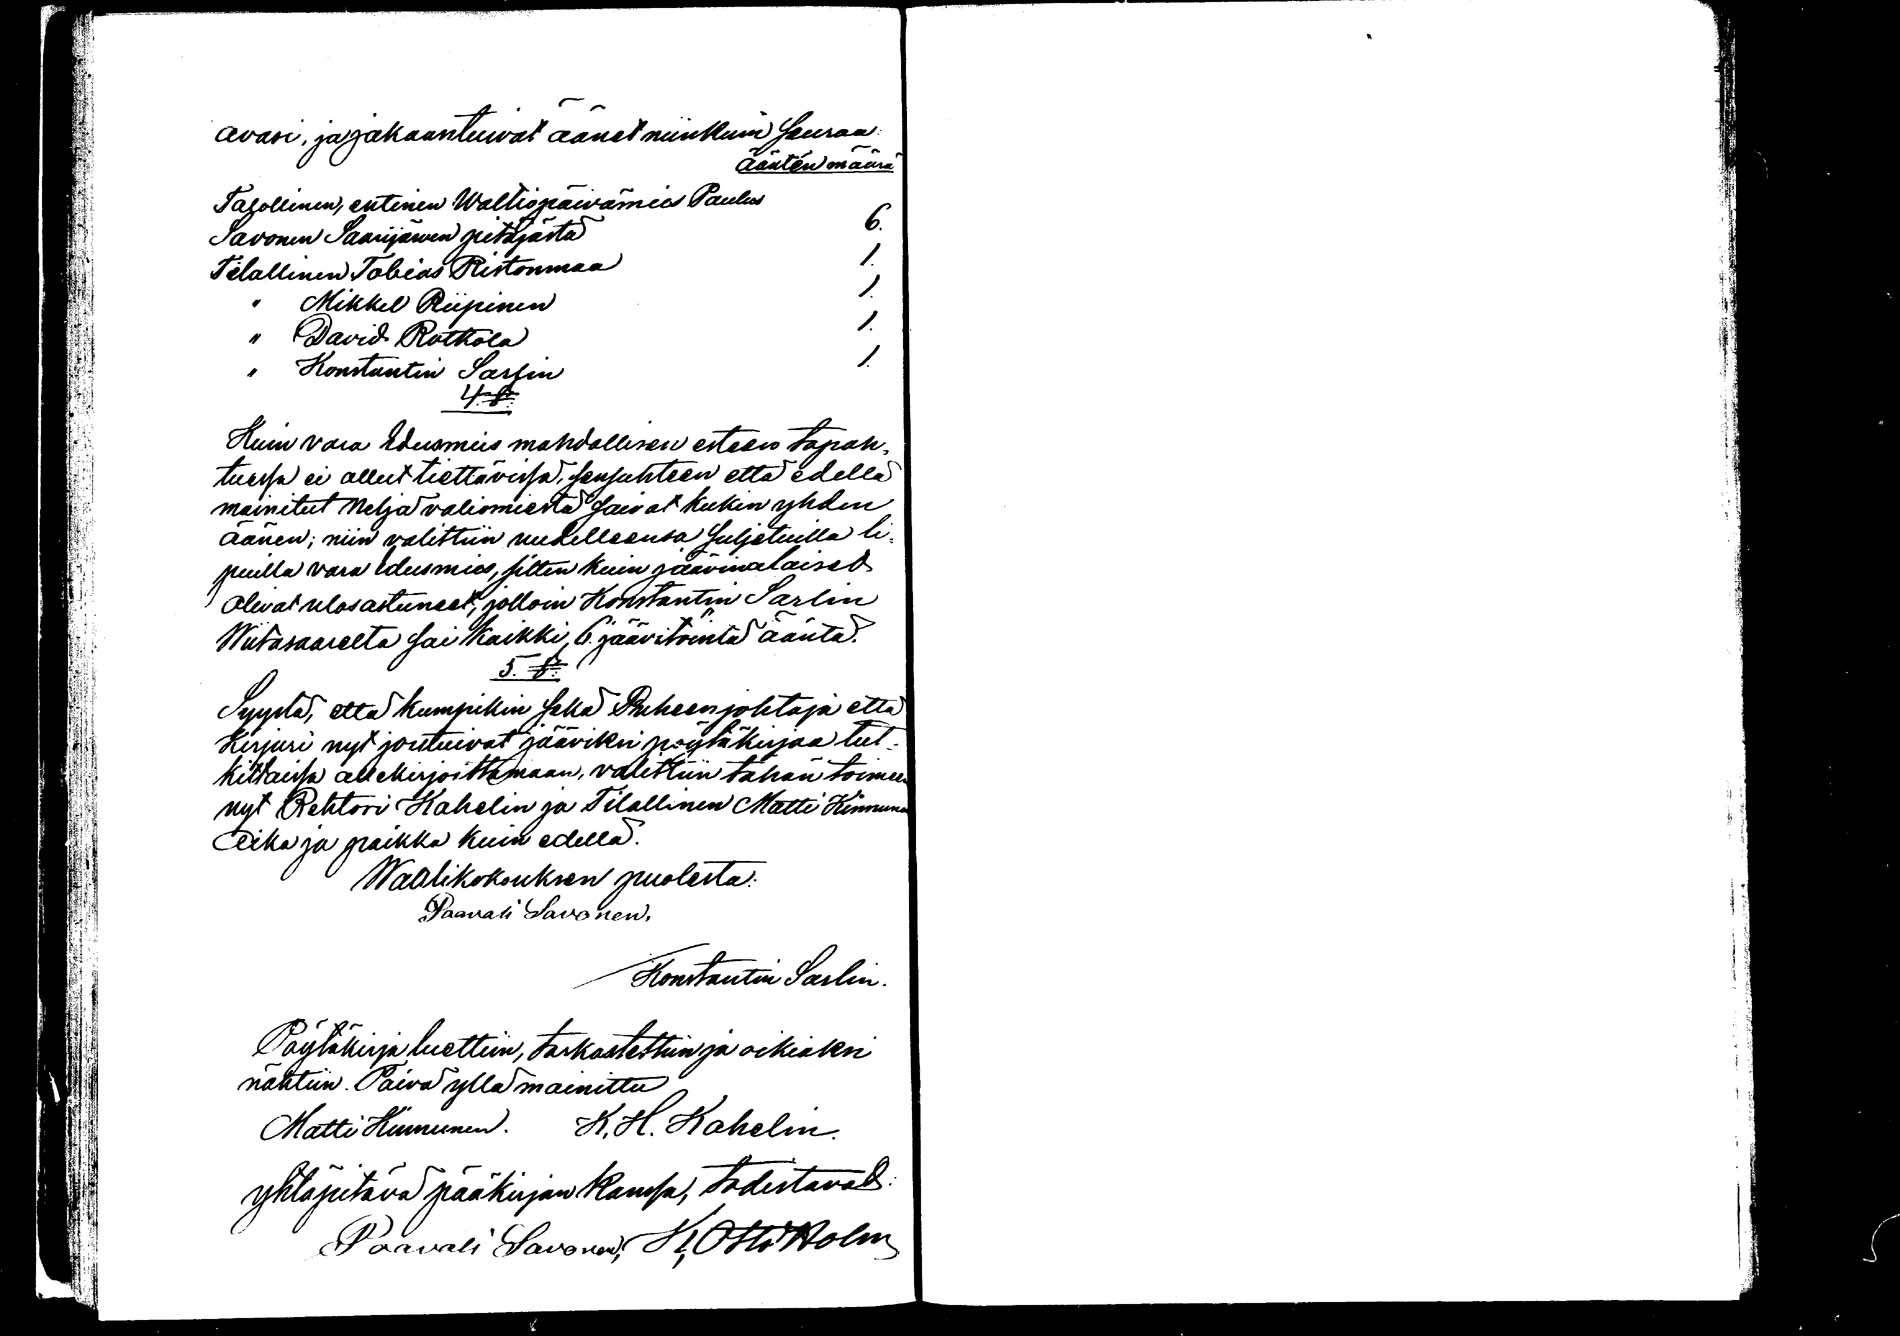 avasi, ja jakaantuivat äänet niinkuin seuraa:
äänten määrä
Talollinen, entinen Waltiopäivämies Paulus
Savonen Saarijärwen pitäjästä 6.
Tilallinen Tobias Ristonmaa 1.
" Mikkel Riipinen 1.
" David Rothola 1.
" Konstantin Sarlin 1.
4. §.
Kuin vara Edusmies mahdollisen esteen tapah-
tuessa ei ollut tiettävissä, sensuhteen että edellä
mainitut neljä valiomiestä saivat kukin yhden
äänen; niin valittiin uudelleensa suljetuilla li-
puilla vara edusmies, sitten kuin jäävinalaiset
olivat ulosastuneet, jolloin Konstantin Sarlin
Wiitasaarelta sai kaikki, 6. jäävitöintä ääntä.
5. §.
Syystä, että kumpikin sekä Puheenjohtaja että
Kirjuri nyt joutuivat jääviksi pöytäkirjaa tut-
kittaissa allekirjoittamaan, valittiin tähän toimeen
nyt Rehtori Kahelin ja Tilallinen Matti Kinnunen
Aika ja paikka kuin edellä.
Waalikokouksen puolesta:
Paavali Savonen.
Konstantin Sarlin.
Pöytäkirja luettiin, tarkastettiin ja oikiaksi
nähtiin. Päivä yllä mainittu
Matti Kinnunen. K. H. Kahelin.
yhtäpitävä pääkirjan kanssa, todistavat:
Paavali Savonen, Otto Holm